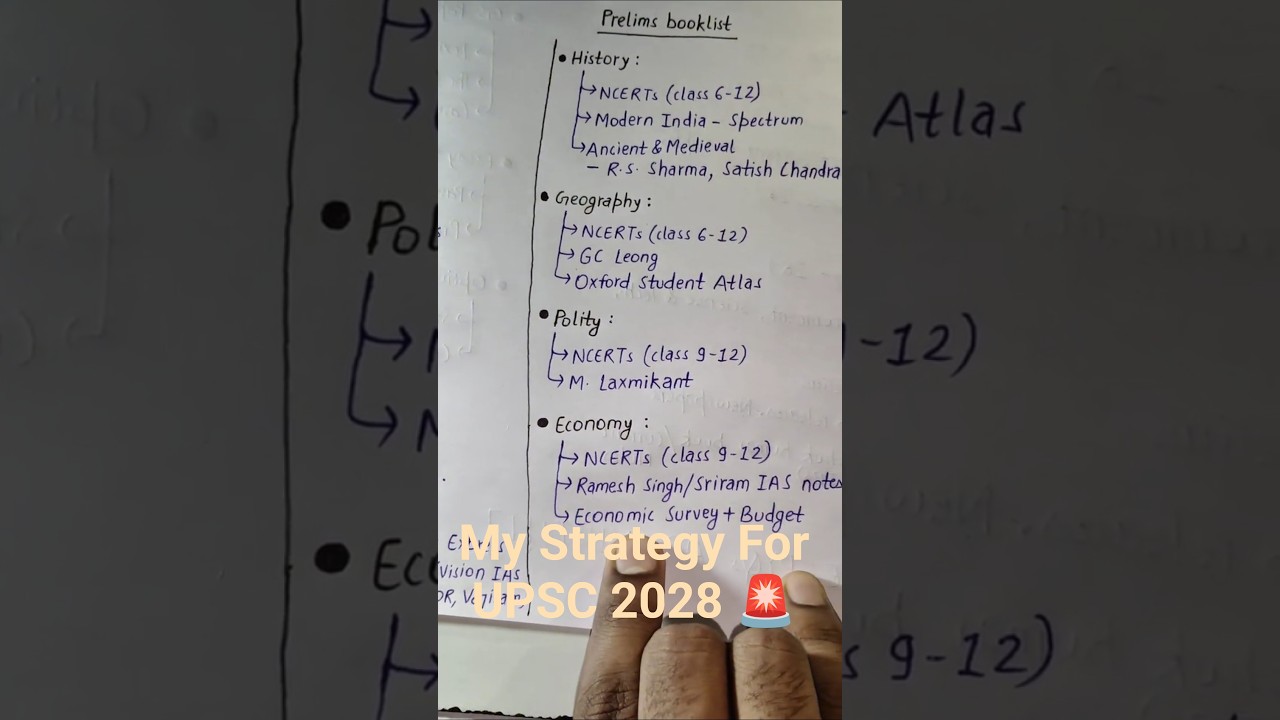 Prelims booklist
• History :
→ NCERTs (class 6-12)
→ Modern India - Spectrum
→ Ancient & Medieval
- R.S. Sharma, Satish Chandra
• Geography :
→ NCERTs (class 6-12)
→ GC Leong
→ Oxford Student Atlas
• Polity :
→ NCERTs (class 9-12)
→ M. Laxmikant
• Economy :
→ NCERTs (class 9-12)
→ Ramesh Singh/Sriram IAS notes
→ Economic Survey + Budget
My Strategy For
UPSC 2028 🚨
Vision IAS
Atlas
• Pol
-12)
• Ec
9-12)